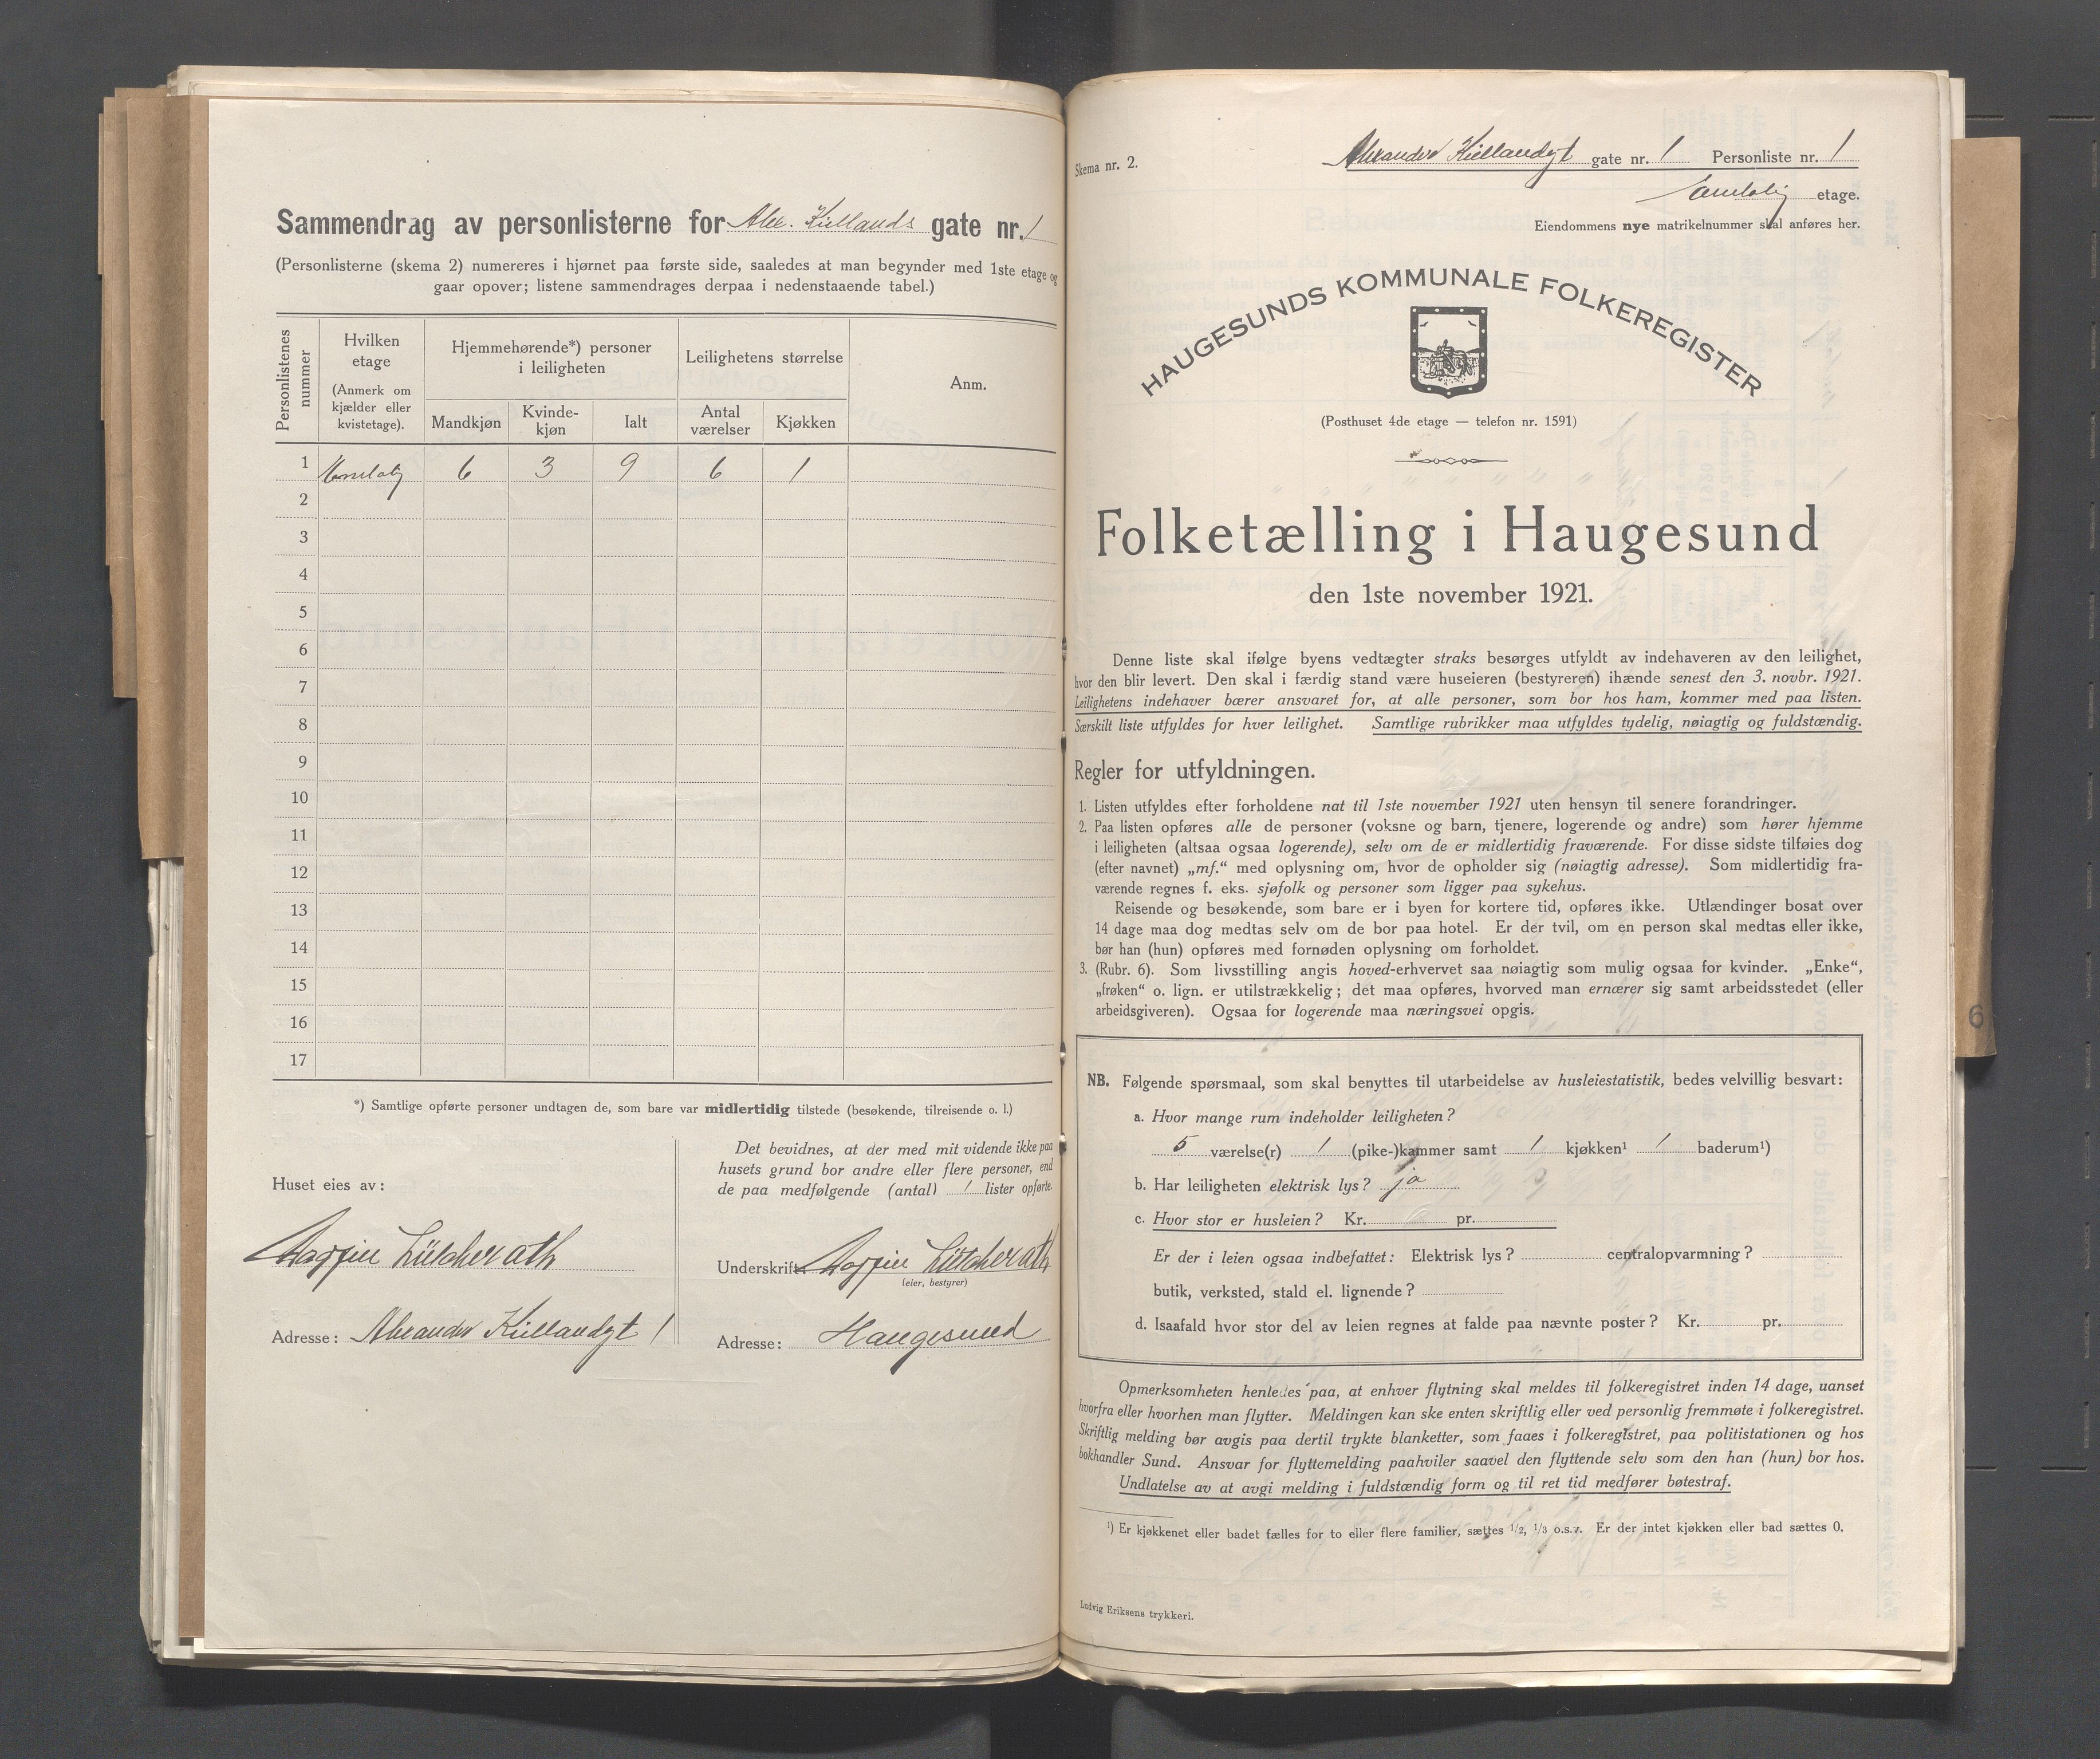 Sammendrag av personlisterne for Alex. Kiellands gate nr. 1
(Personlisterne (skema 2) numereres i hjørnet paa første side, saaledes at man begynder med 1ste etage og
gaar opover; listene sammendrages derpaa i nedenstaaende tabel.)
Personlistenes nummer
Hvilken etage
(Anmerk om kjælder eller kvistetage).
Hjemmehørende*) personer i leiligheten
Mandkjøn
Kvinde-kjøn
Ialt
Leilighetens størrelse
Antal værelser
Kjøkken
Anm.
1 6 3 9 6 1
2
3
4
5
6
7
8
9
10
11
12
13
14
15
16
17
*) Samtlige opførte personer undtagen de, som bare var midlertidig tilstede (besøkende, tilreisende o. l.)
Huset eies av:
Adresse: Alexander Kiellandgt 1
Det bevidnes, at der med mit vidende ikke paa
husets grund bor andre eller flere personer, end
de paa medfølgende (antal) 1 lister opførte.
Underskrift:
(eier, bestyrer)
Adresse: Haugesund
Skema nr. 2.
Alexander Kiellandgt gate nr. 1 Personliste nr. 1
etage.
Eiendommens nye matrikelnummer skal anføres her.
HAUGESUNDS KOMMUNALE FOLKEREGISTER
(Posthuset 4de etage — telefon nr. 1591)
Folketælling i Haugesund
den 1ste november 1921.
Denne liste skal ifølge byens vedtægter straks besørges utfyldt av indehaveren av den leilighet,
hvor den blir levert. Den skal i færdig stand være huseieren (bestyreren) ihænde senest den 3. novbr. 1921.
Leilighetens indehaver bærer ansvaret for, at alle personer, som bor hos ham, kommer med paa listen.
Særskilt liste utfyldes for hver leilighet. Samtlige rubrikker maa utfyldes tydelig, nøiagtig og fuldstændig.
Regler for utfyldningen.
1. Listen utfyldes efter forholdene nat til 1ste november 1921 uten hensyn til senere forandringer.
2. Paa listen opføres alle de personer (voksne og barn, tjenere, logerende og andre) som hører hjemme
i leiligheten (altsaa ogsaa logerende), selv om de er midlertidig fraværende. For disse sidste tilføies dog
(efter navnet) „mf.“ med oplysning om, hvor de opholder sig (nøiagtig adresse). Som midlertidig fra-
værende regnes f. eks. sjøfolk og personer som ligger paa sykehus.
Reisende og besøkende, som bare er i byen for kortere tid, opføres ikke. Utlændinger bosat over
14 dage maa dog medtas selv om de bor paa hotel. Er der tvil, om en person skal medtas eller ikke,
bør han (hun) opføres med fornøden oplysning om forholdet.
3. (Rubr. 6). Som livsstilling angis hoved-erhvervet saa nøiagtig som mulig ogsaa for kvinder. „Enke“,
„frøken“ o. lign. er utilstrækkelig; det maa opføres, hvorved man ernærer sig samt arbeidsstedet (eller
arbeidsgiveren). Ogsaa for logerende maa næringsvei opgis.
NB. Følgende spørsmaal, som skal benyttes til utarbeidelse av husleiestatistik, bedes velvillig besvart:
a. Hvor mange rum indeholder leiligheten?
5 værelse(r) 1 (pike-)kammer samt 1 kjøkken¹ 1 baderum¹)
b. Har leiligheten elektrisk lys? ja
c. Hvor stor er husleien? Kr. pr.
Er der i leien ogsaa indbefattet: Elektrisk lys? centralopvarmning?
butik, verksted, stald el. lignende?
d. Isaafald hvor stor del av leien regnes at falde paa nævnte poster? Kr. pr.
Opmerksomheten henledes paa, at enhver flytning skal meldes til folkeregistret inden 14 dage, uanset
hvorfra eller hvorhen man flytter. Meldingen kan ske enten skriftlig eller ved personlig fremmøte i folkeregistret.
Skriftlig melding bør avgis paa dertil trykte blanketter, som faaes i folkeregistret, paa politistationen og hos
bokhandler Sund. Ansvar for flyttemelding paahviler saavel den flyttende selv som den han (hun) bor hos.
Undlatelse av at avgi melding i fuldstændig form og til ret tid medfører bøtestraf.
¹) Er kjøkkenet eller badet fælles for to eller flere familier, sættes 1/2, 1/3 o.s.v. Er der intet kjøkken eller bad sættes 0.
Ludvig Eriksens trykkeri.
6